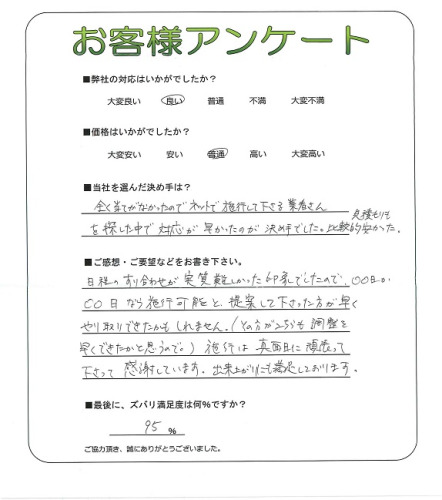 お客様アンケート
■弊社の対応はいかがでしたか?
大変良い 良い 普通 不満 大変不満
■価格はいかがでしたか?
大変安い 安い 普通 高い 大変高い
■当社を選んだ決め手は?
全く当てがなかったのでネットで施行して下さる業者さん
を探した中で対応が早かったのが決め手でした。比較的安かった。
見積もりも
■ご感想・ご要望などをお書き下さい。
日程のすり合わせが実質難しかった印象でしたので、〇〇日か
〇〇日なら施行可能と、提案して下さった方が早く
やり取りできたかもしれません。(その方がこちらも調整を
早くできたかと思うので。) 施行は真面目に頑張って
下さって感謝しています。出来上がりにも満足しております。
■最後に、ズバリ満足度は何%ですか?
95 %
ご協力頂き、誠にありがとうございました。